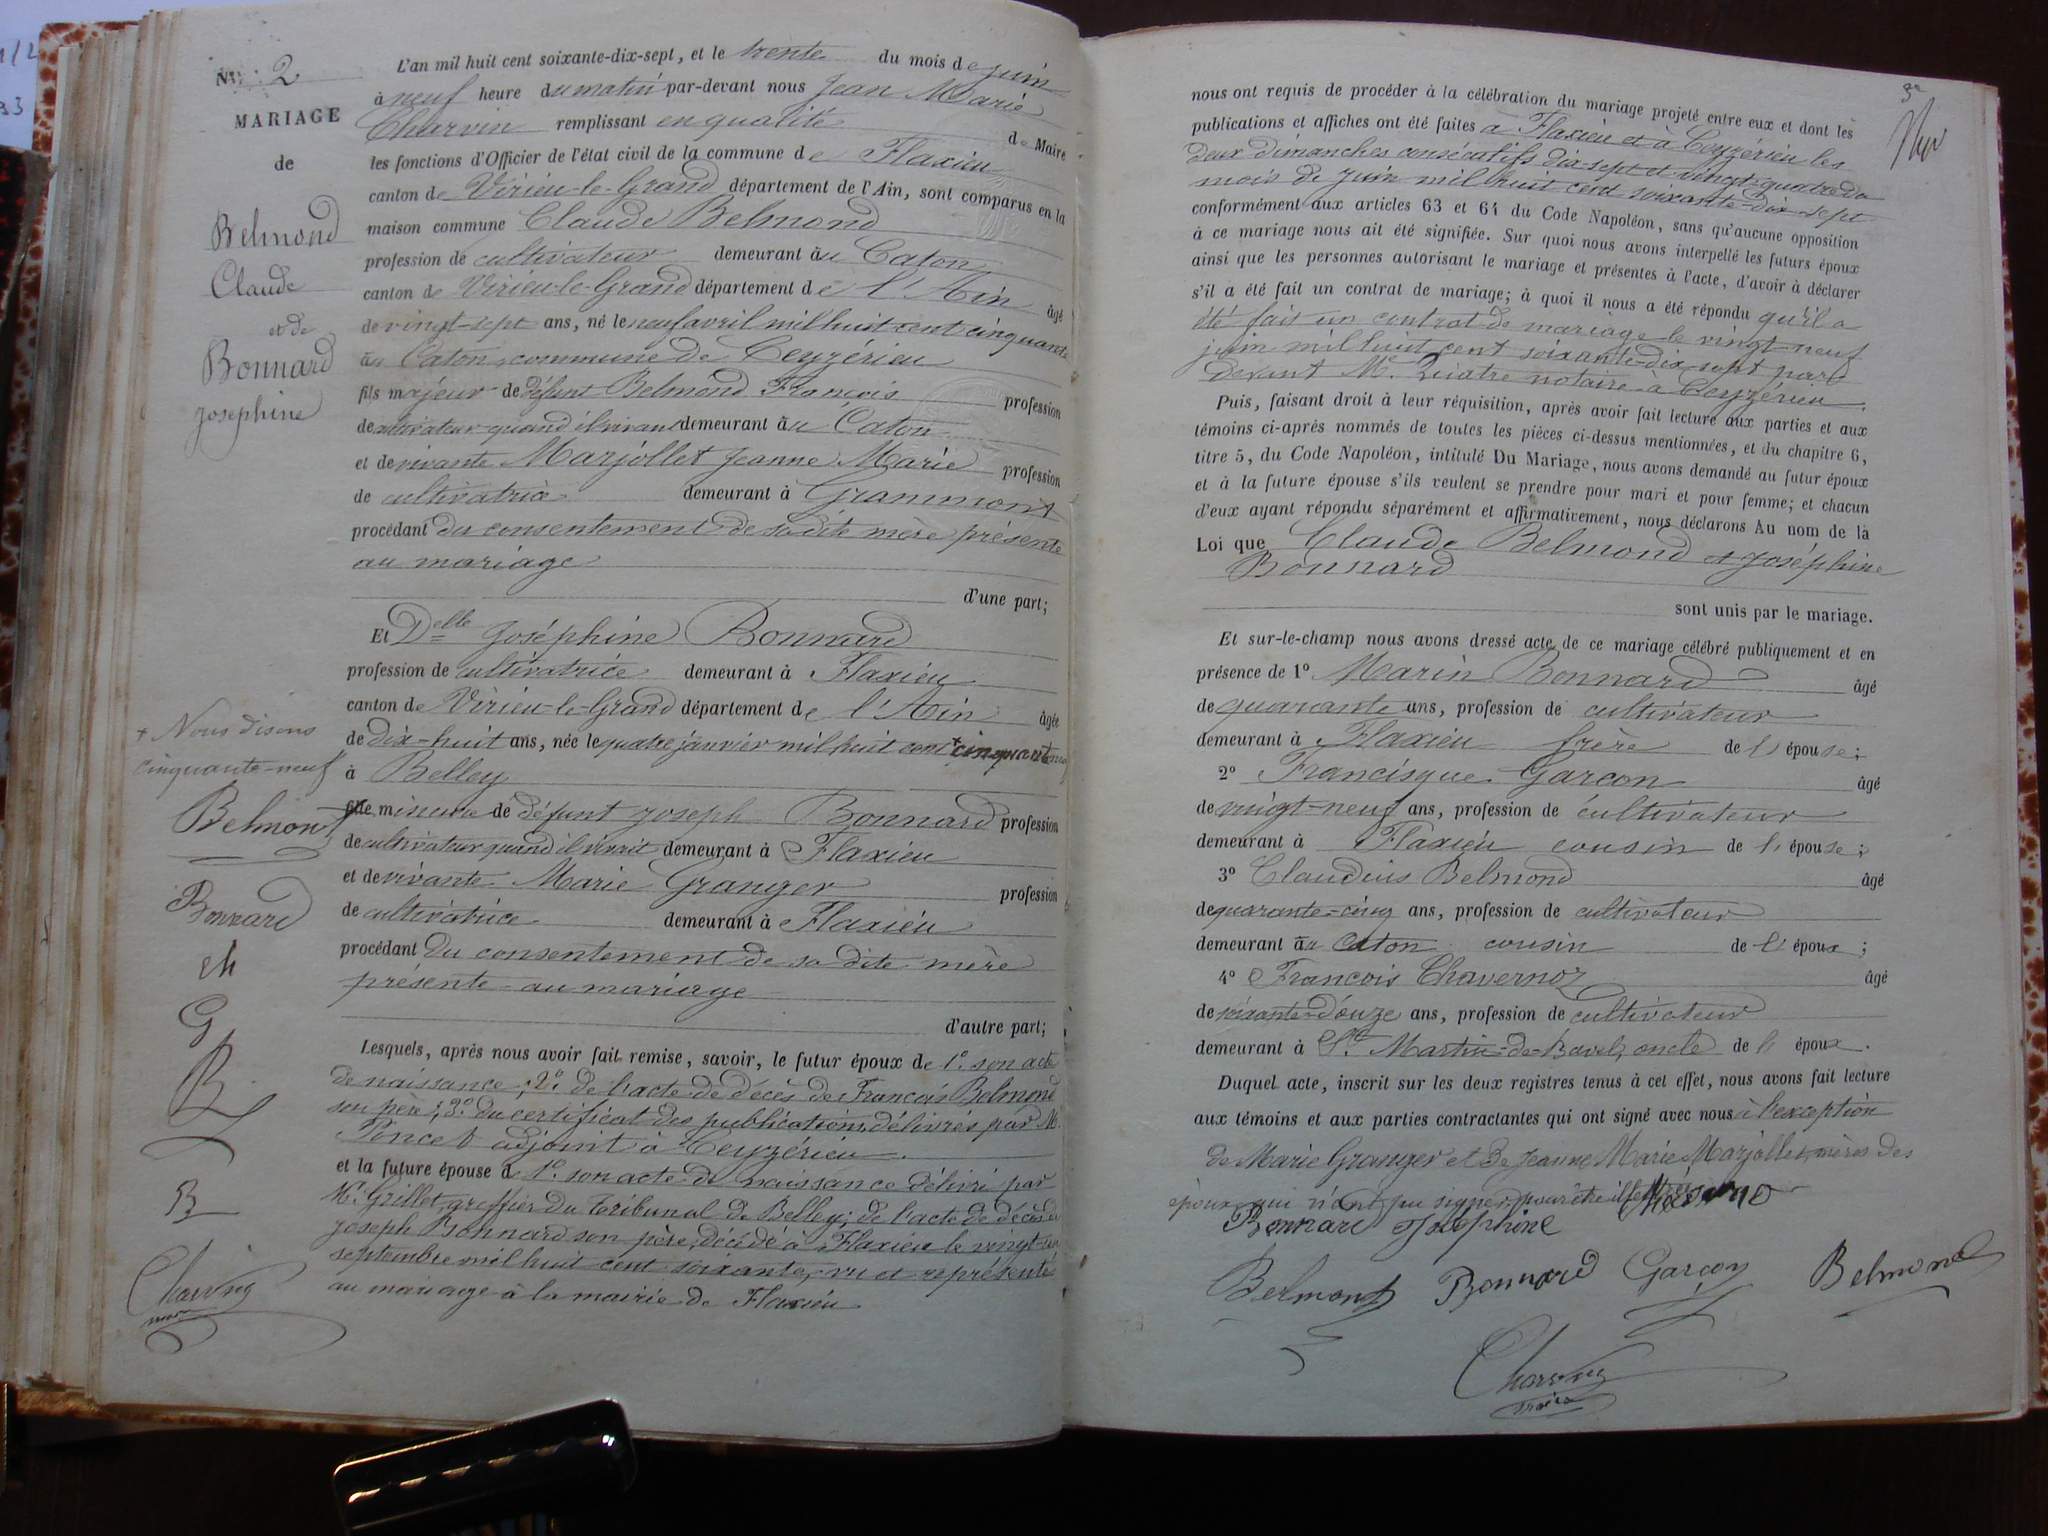 N° 2
MARIAGE
de
Belmond
Claude
et de
Bonnard
Josephine
L'an mil huit cent soixante-dix-sept, et le trente du mois de juin
à neuf heure du matin par-devant nous Jean Marie
Charvin remplissant en qualité de Maire
les fonctions d'Officier de l'état civil de la commune de Flaxieu
canton de Virieu-le-Grand département de l'Ain, sont comparus en la
maison commune Claude Belmond
profession de cultivateur demeurant au Caton
canton de Virieu-le-Grand département de l'Ain âgé
de vingt-sept ans, né le neuf avril mil huit cent cinquante
au Caton, commune de Ceyzérieu
fils majeur de défunt Belmond François profession
de cultivateur quand il vivait demeurant au Caton
et de vivante Marjollet Jeanne Marie profession
de cultivatrice demeurant à Grammont
procédant du consentement de sa dite mère présente
au mariage
d'une part;
Et Delle Joséphine Bonnard
profession de cultivatrice demeurant à Flaxieu
canton de Virieu-le-Grand département de l'Ain âgée
de dix-huit ans, née le quatre janvier mil huit cent + cinquante neuf
à Belley
fille mineure de défunt Joseph Bonnard profession
de cultivateur quand il vivait demeurant à Flaxieu
et de vivante Marie Granger profession
de cultivatrice demeurant à Flaxieu
procédant du consentement de sa dite mère
présente au mariage
d'autre part;
Lesquels, après nous avoir fait remise, savoir, le futur époux de 1° son acte
de naissance; 2° de l'acte de décès de François Belmond
son père; 3° du certificat des publications délivrés par M.
Poncet adjoint à Ceyzérieu.
et la future épouse d 1° son acte de naissance délivré par
M. Grillet, greffier du Tribunal de Belley; de l'acte de décès de
Joseph Bonnard son père, décédé à Flaxieu le vingt-un
septembre mil huit cent soixante, vu et représenté
au mariage à la mairie de Flaxieu
+ Nous disons
cinquante-neuf
Belmont
Bonnard
M
G
B
B
Charvin
maire
nous ont requis de procéder à la célébration du mariage projeté entre eux et dont les
publications et affiches ont été faites à Flaxieu et à Ceyzérieu les
deux dimanches consécutifs dix-sept et vingt-quatre du
mois de juin mil huit cent soixante-dix-sept
conformément aux articles 63 et 64 du Code Napoléon, sans qu'aucune opposition
à ce mariage nous ait été signifiée. Sur quoi nous avons interpellé les futurs époux
ainsi que les personnes autorisant le mariage et présentes à l'acte, d'avoir à déclarer
s'il a été fait un contrat de mariage; à quoi il nous a été répondu qu'il a
été fait un contrat de mariage le vingt-neuf
juin mil huit cent soixante-dix-sept par
devant Me. Quatre notaire à Ceyzérieu.
Puis, faisant droit à leur réquisition, après avoir fait lecture aux parties et aux
témoins ci-après nommés de toutes les pièces ci-dessus mentionnées, et du chapitre 6,
titre 5, du Code Napoléon, intitulé Du Mariage, nous avons demandé au futur époux
et à la future épouse s'ils veulent se prendre pour mari et pour femme; et chacun
d'eux ayant répondu séparément et affirmativement, nous déclarons Au nom de la
Loi que Claude Belmond et Joséphine
Bonnard
sont unis par le mariage.
Et sur-le-champ nous avons dressé acte de ce mariage célébré publiquement et en
présence de 1° Marin Bonnard âgé
de quarante ans, profession de cultivateur
demeurant à Flaxieu frère de l'épouse;
2° Francisque Garcon âgé
de vingt-neuf ans, profession de cultivateur
demeurant à Flaxieu cousin de l'épouse;
3° Claudius Belmond âgé
de quarante-cinq ans, profession de cultivateur
demeurant au Caton cousin de l'époux;
4° François Chavernoz âgé
de soixante-douze ans, profession de cultivateur
demeurant à St. Martin-de-Bavel, oncle de l'époux.
Duquel acte, inscrit sur les deux registres tenus à cet effet, nous avons fait lecture
aux témoins et aux parties contractantes qui ont signé avec nous à l'exception
de Marie Granger et de Jeanne Marie Marjollet, mères des
époux qui n'ont pu signer pour être illettrées
Bonnard Josephine
Belmont Bonnard Garcon Belmond
Charvin
maire